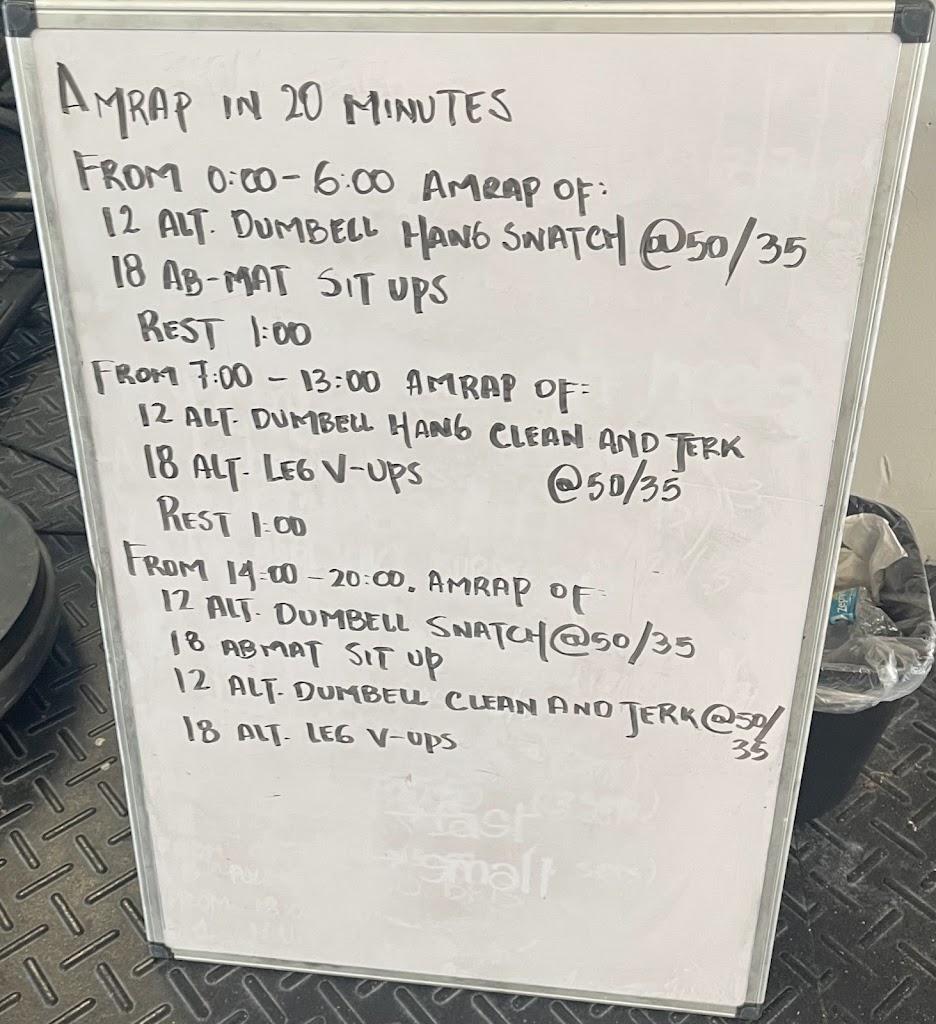 AMRAP IN 20 MINUTES
FROM 0:00 - 6:00 AMRAP OF:
12 ALT. DUMBELL HANG SNATCH @50/35
18 AB-MAT SIT UPS
REST 1:00
FROM 7:00 - 13:00 AMRAP OF:
12 ALT. DUMBELL HANG CLEAN AND JERK
18 ALT. LEG V-UPS @50/35
REST 1:00
FROM 14:00 - 20:00. AMRAP OF:
12 ALT. DUMBELL SNATCH @50/35
18 ABMAT SIT UP
12 ALT. DUMBELL CLEAN AND JERK @50/
35
18 ALT. LEG V-UPS
fast
small